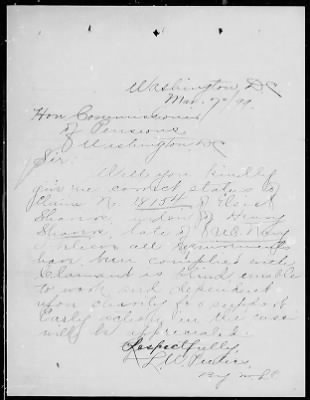 Washington, DC
Mar. 7"/99.
Hon Commissioner
of Pensions
Washington DC
Sir:
Will you kindly
give me correct status of
Claim No 18154 of
widow of Henry
late of U.S. Navy
all requirements
have been complied with
Claimant is blind unable
to work and dependent
upon charity for support
Early action in the case
will be appreciated.
Respectfully
L.W.
By